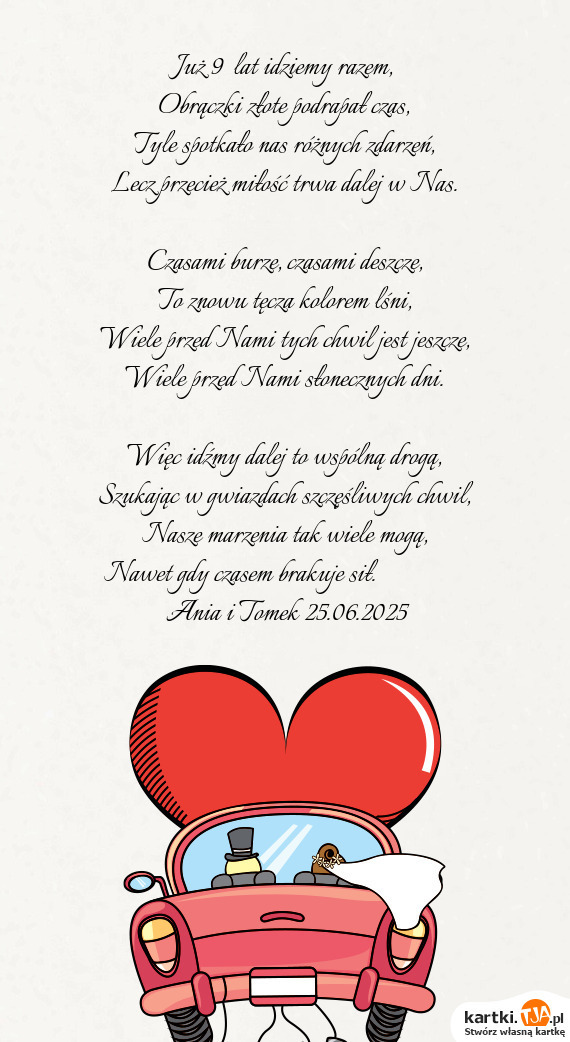 Już 9 lat idziemy razem,
Obrączki złote podrapał czas,
Tyle spotkało nas różnych zdarzeń,
Lecz przecież miłość trwa dalej w Nas.

Czasami burze, czasami deszcze,
To znowu tęcza kolorem lśni,
Wiele przed Nami tych chwil jest jeszcze,
Wiele przed Nami słonecznych dni.

Więc idźmy dalej to wspólną drogą,
Szukając w gwiazdach szczęśliwych chwil,
Nasze marzenia tak wiele mogą,
Nawet gdy czasem brakuje sił.
Ania i Tomek 25.06.2025
kartki.TJA.pl
Stwórz własną kartkę